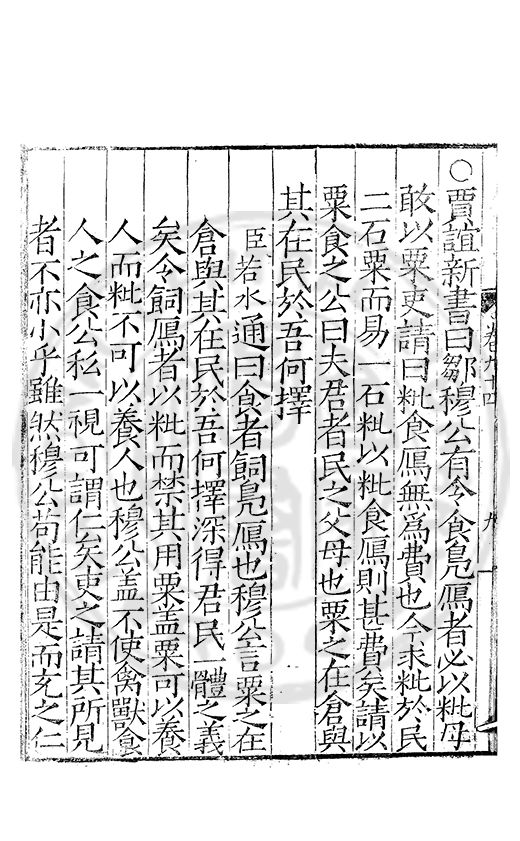 ○賈誼新書曰鄒穆公有令食鳬鴈者必以粃毋
敢以粟吏請曰粃食鴈無爲費也今求粃於民
二石粟而易一石粃以粃食鴈則甚費矣請以
粟食之公曰夫君者民之父母也粟之在倉與
其在民於吾何擇
臣若水通曰食者飼鳬鴈也穆公言粟之在
倉與其在民於吾何擇深得君民一體之義
矣令飼鴈者以粃而禁其用粟盖粟可以養
人而粃不可以養人也穆公盖不使禽獸食
人之食公私一視可謂仁矣吏之請其所見
者不亦小乎雖然穆公苟能由是而充之仁
卷九十四
九